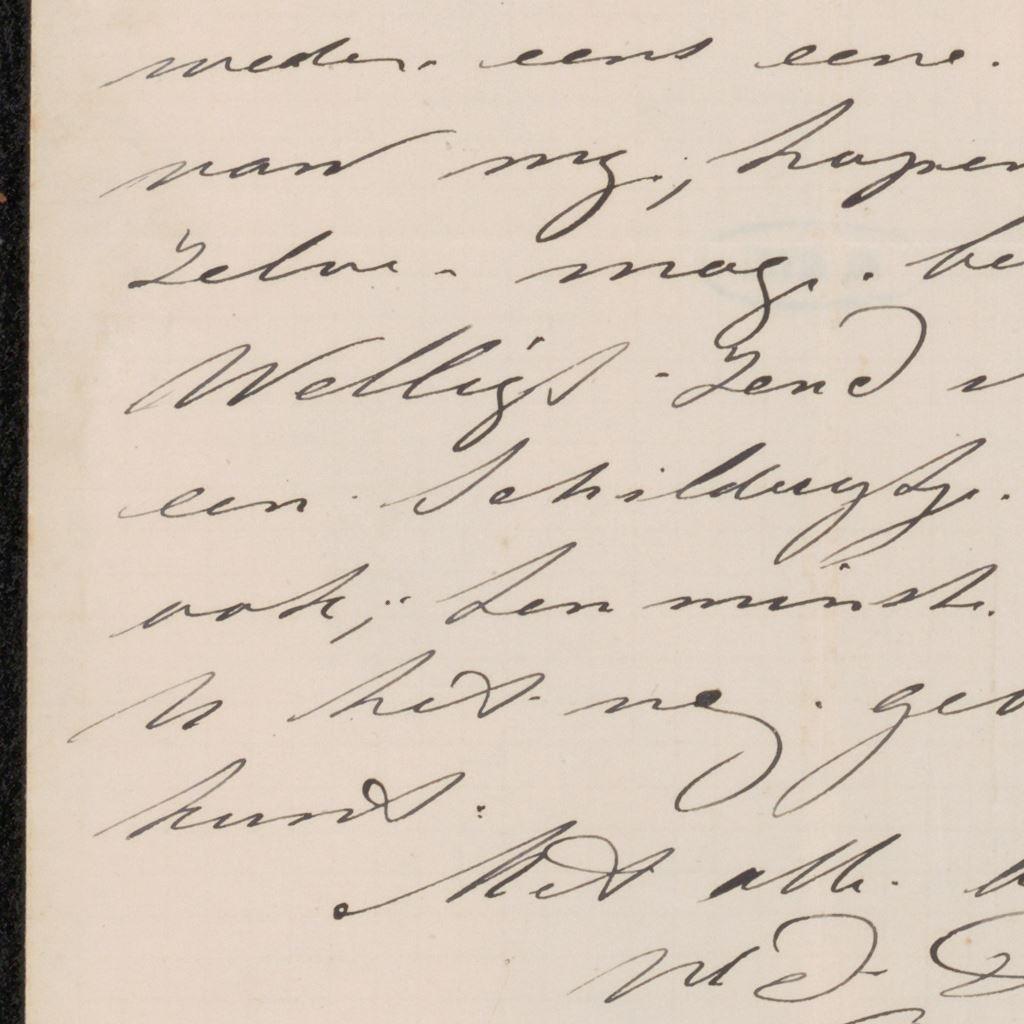 weder eens eene.
van my, hopen
zelve mag. be
Welligt zend
een Schilderytje.
ook; ten minste.
U het nog. geb
kunt.
Met alle.